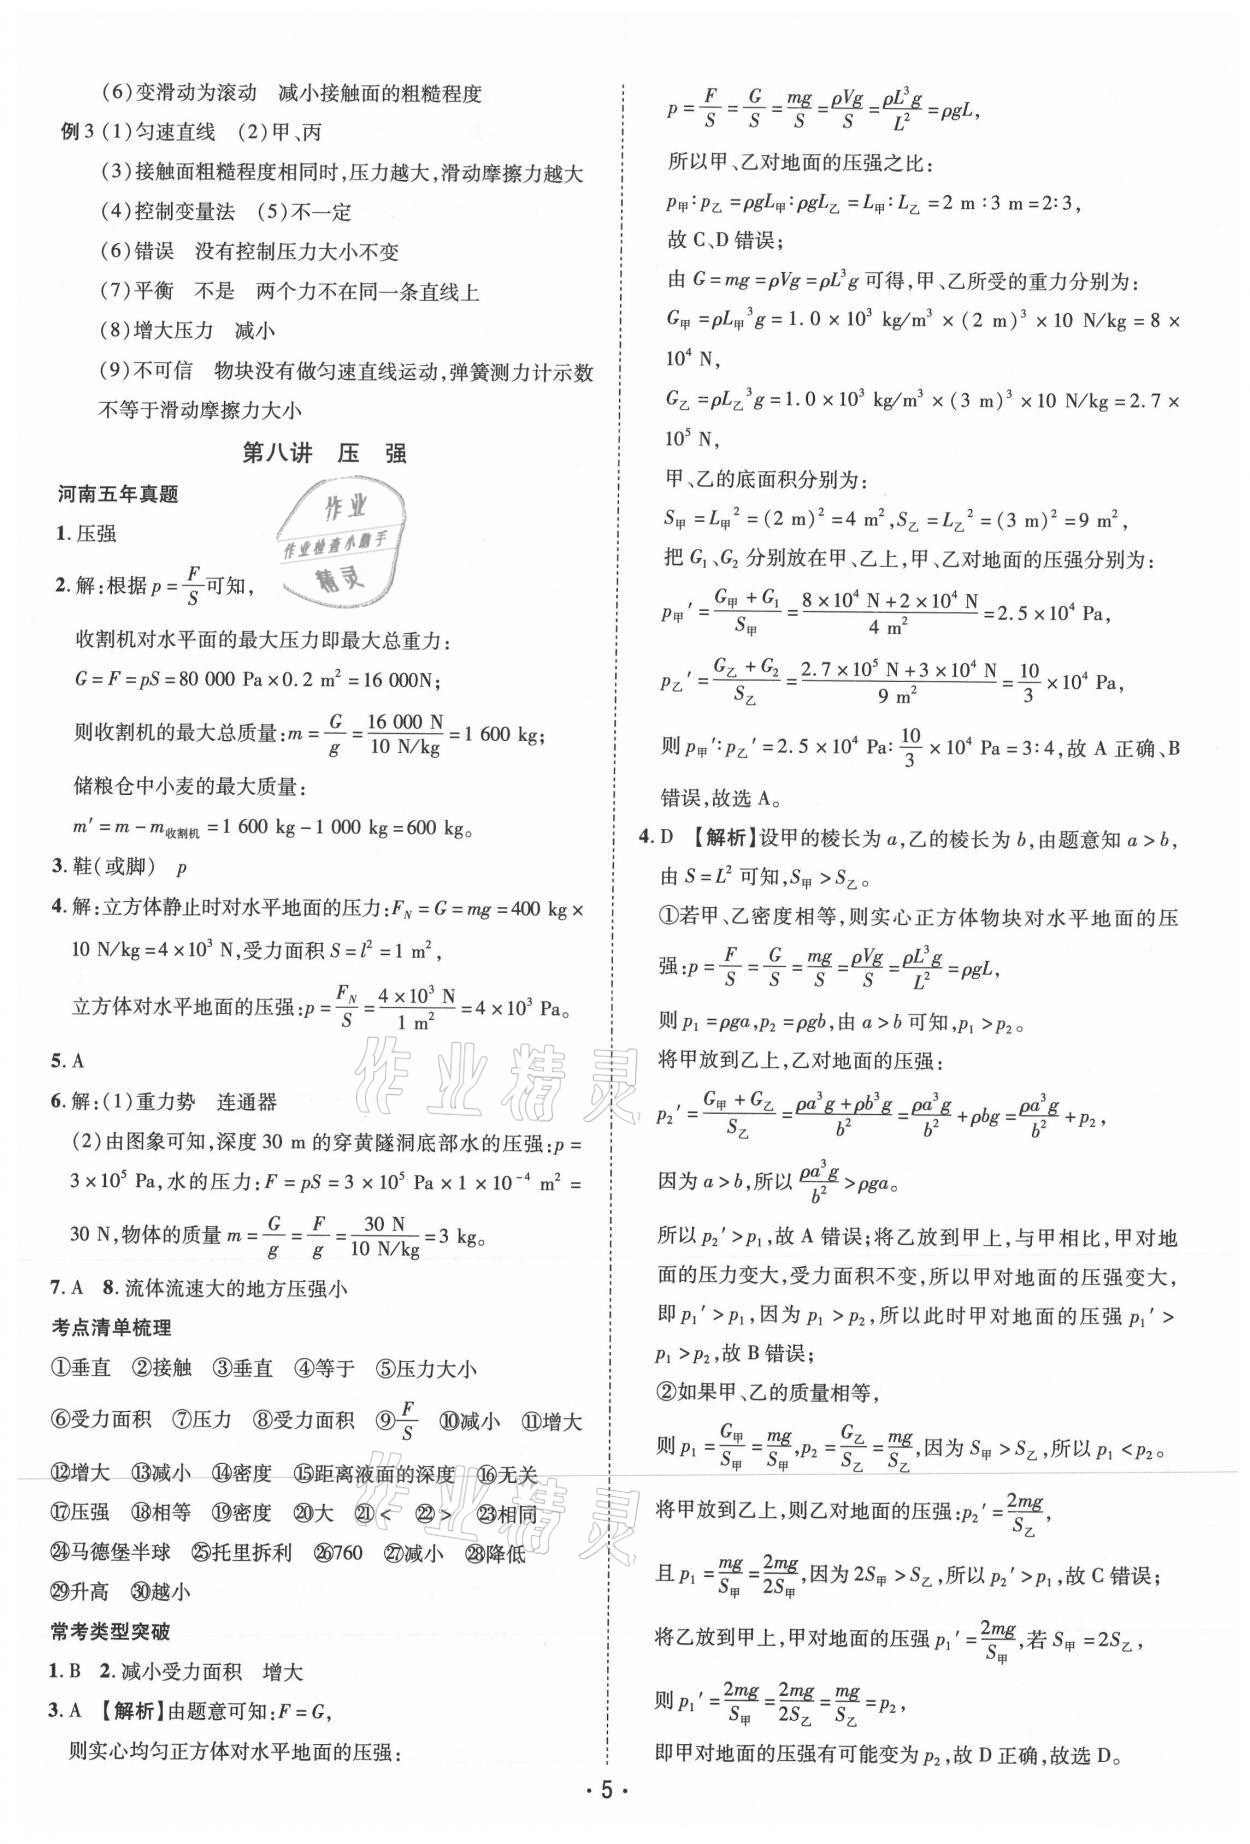 (6)变滑动为滚动　减小接触面的粗糙程度
例 3 (1)匀速直线　(2)甲、丙
(3)接触面粗糙程度相同时,压力越大,滑动摩擦力越大
(4)控制变量法　(5)不一定
(6)错误　没有控制压力大小不变
(7)平衡　不是　两个力不在同一条直线上
(8)增大压力　减小
(9)不可信　物块没有做匀速直线运动,弹簧测力计示数
不等于滑动摩擦力大小
第八讲　压　强
河南五年真题
1. 压强
2. 解:根据 p = F/S 可知,
收割机对水平面的最大压力即最大总重力:
G = F = pS = 80 000 Pa × 0.2 m² = 16 000N;
则收割机的最大总质量:m = G/g = 16 000 N/10 N/kg = 1 600 kg;
储粮仓中小麦的最大质量:
m′ = m − m收割机 = 1 600 kg − 1 000 kg = 600 kg。
3. 鞋(或脚)　p
4. 解:立方体静止时对水平地面的压力:F_N = G = mg = 400 kg ×
10 N/kg = 4 × 10³ N,受力面积 S = l² = 1 m²,
立方体对水平地面的压强:p = F_N/S = 4 × 10³ N/1 m² = 4 × 10³ Pa。
5. A
6. 解:(1)重力势　连通器
(2)由图象可知,深度 30 m 的穿黄隧洞底部水的压强:p =
3 × 10⁵ Pa,水的压力:F = pS = 3 × 10⁵ Pa × 1 × 10⁻⁴ m² =
30 N,物体的质量 m = G/g = F/g = 30 N/10 N/kg = 3 kg。
7. A　8. 流体流速大的地方压强小
考点清单梳理
①垂直　②接触　③垂直　④等于　⑤压力大小
⑥受力面积　⑦压力　⑧受力面积　⑨F/S　⑩减小　⑪增大
⑫增大　⑬减小　⑭密度　⑮距离液面的深度　⑯无关
⑰压强　⑱相等　⑲密度　⑳大　㉑<　㉒>　㉓相同
㉔马德堡半球　㉕托里拆利　㉖760　㉗减小　㉘降低
㉙升高　㉚越小
常考类型突破
1. B　2. 减小受力面积　增大
3. A　【解析】由题意可知:F = G,
则实心均匀正方体对水平地面的压强:
p = F/S = G/S = mg/S = ρVg/S = ρL³g/L² = ρgL,
所以甲、乙对地面的压强之比:
p甲∶p乙 = ρgL甲∶ρgL乙 = L甲∶L乙 = 2 m∶3 m = 2∶3,
故 C、D 错误;
由 G = mg = ρVg = ρL³g 可得,甲、乙所受的重力分别为:
G甲 = ρL甲³g = 1.0 × 10³ kg/m³ × (2 m)³ × 10 N/kg = 8 ×
10⁴ N,
G乙 = ρL乙³g = 1.0 × 10³ kg/m³ × (3 m)³ × 10 N/kg = 2.7 ×
10⁵ N,
甲、乙的底面积分别为:
S甲 = L甲² = (2 m)² = 4 m²,S乙 = L乙² = (3 m)² = 9 m²,
把 G₁、G₂ 分别放在甲、乙上,甲、乙对地面的压强分别为:
p甲′ = (G甲 + G₁)/S甲 = (8 × 10⁴ N + 2 × 10⁴ N)/4 m² = 2.5 × 10⁴ Pa,
p乙′ = (G乙 + G₂)/S乙 = (2.7 × 10⁵ N + 3 × 10⁴ N)/9 m² = 10/3 × 10⁴ Pa,
则 p甲′∶p乙′ = 2.5 × 10⁴ Pa∶10/3 × 10⁴ Pa = 3∶4,故 A 正确、B
错误,故选 A。
4. D　【解析】设甲的棱长为 a,乙的棱长为 b,由题意知 a > b,
由 S = L² 可知,S甲 > S乙。
①若甲、乙密度相等,则实心正方体物块对水平地面的压
强:p = F/S = G/S = mg/S = ρVg/S = ρL³g/L² = ρgL,
则 p₁ = ρga,p₂ = ρgb,由 a > b 可知,p₁ > p₂。
将甲放到乙上,乙对地面的压强:
p₂′ = (G甲 + G乙)/S乙 = (ρa³g + ρb³g)/b² = ρa³g/b² + ρbg = ρa³g/b² + p₂,
因为 a > b,所以 ρa³g/b² > ρga。
所以 p₂′ > p₁,故 A 错误;将乙放到甲上,与甲相比,甲对地
面的压力变大,受力面积不变,所以甲对地面的压强变大,
即 p₁′ > p₁,因为 p₁ > p₂,所以此时甲对地面的压强 p₁′ >
p₁ > p₂,故 B 错误;
②如果甲、乙的质量相等,
则 p₁ = G甲/S甲 = mg/S甲,p₂ = G乙/S乙 = mg/S乙,因为 S甲 > S乙,所以 p₁ < p₂。
将甲放到乙上,则乙对地面的压强:p₂′ = 2mg/S乙,
且 p₁ = mg/S甲 = 2mg/2S甲,因为 2S甲 > S乙,所以 p₂′ > p₁,故 C 错误;
将乙放到甲上,甲对地面的压强 p₁′ = 2mg/S甲,若 S甲 = 2S乙,
则 p₁′ = 2mg/S甲 = 2mg/2S乙 = mg/S乙 = p₂,
即甲对地面的压强有可能变为 p₂,故 D 正确,故选 D。
· 5 ·
作业
作业检查小助手
精灵
作业精灵
作业精灵